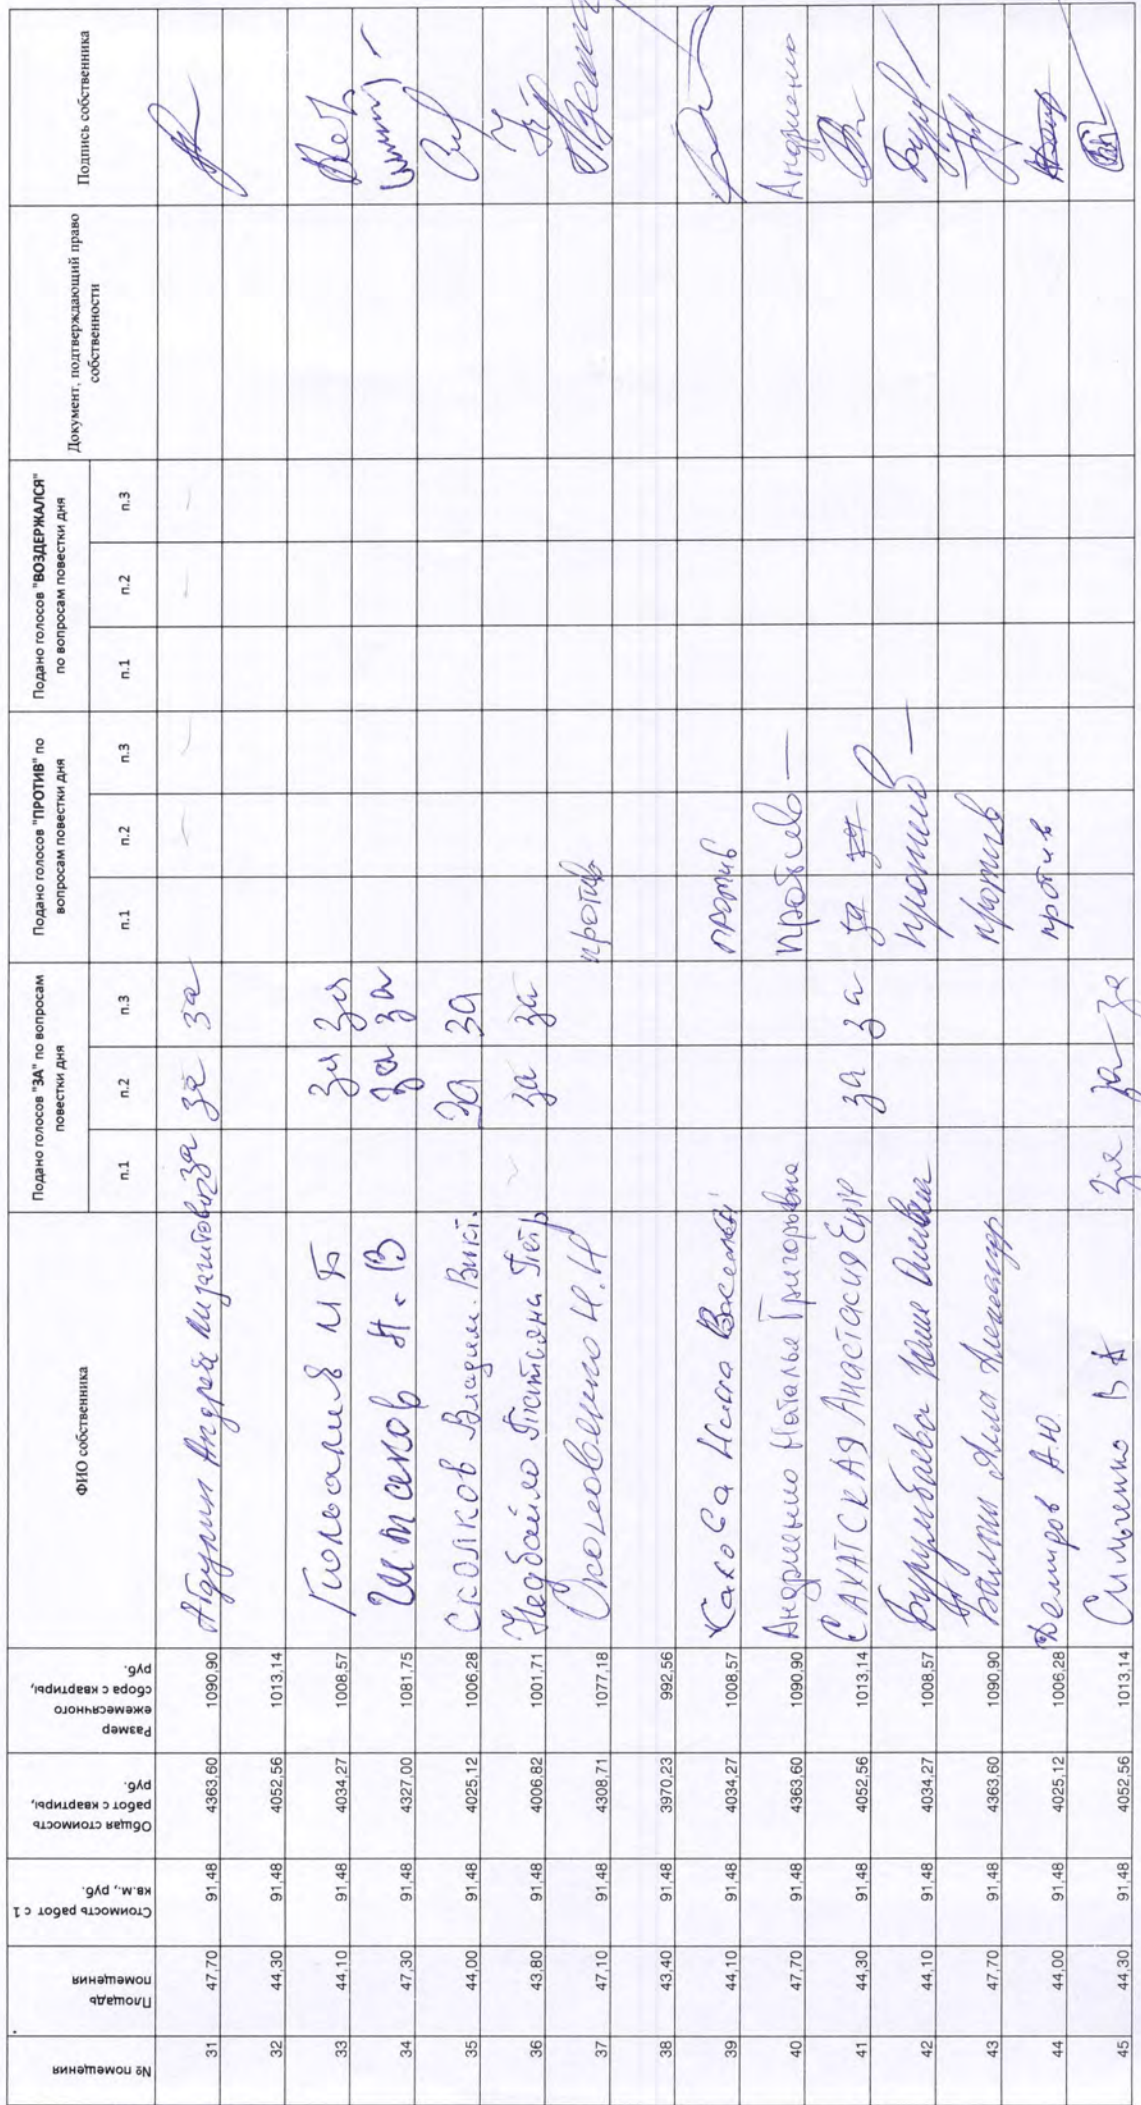 № помещения
Площадь помещения
Стоимость работ с 1 кв.м., руб.
Общая стоимость работ с квартиры, руб.
Размер ежемесячного сбора с квартиры, руб.
ФИО собственника
Подано голосов "ЗА" по вопросам повестки дня
п.1 п.2 п.3
Подано голосов "ПРОТИВ" по вопросам повестки дня
п.1 п.2 п.3
Подано голосов "ВОЗДЕРЖАЛСЯ" по вопросам повестки дня
п.1 п.2 п.3
Документ, подтверждающий право собственности
Подпись собственника
31 47,70 91,48 4363,60 1090,90 Андрей за за за
32 44,30 91,48 4052,56 1013,14
33 44,10 91,48 4034,27 1008,57 за за
34 47,30 91,48 4327,00 1081,75 Н. В за за
35 44,00 91,48 4025,12 1006,28 Сколков Владим. Викт. за за
36 43,80 91,48 4006,82 1001,71 Недбайло Татьяна Петр за за
37 47,10 91,48 4308,71 1077,18 Н.Н против
38 43,40 91,48 3970,23 992,56
39 44,10 91,48 4034,27 1008,57 Нина против
40 47,70 91,48 4363,60 1090,90 Андриенко Наталья Григорьевна против — Андриенко
41 44,30 91,48 4052,56 1013,14 САХАТСКАЯ Анастасия за за за
42 44,10 91,48 4034,27 1008,57 против —
43 47,70 91,48 4363,60 1090,90 Алла против
44 44,00 91,48 4025,12 1006,28 Демиров А.Ю. против
45 44,30 91,48 4052,56 1013,14 Сильченко В К за за за